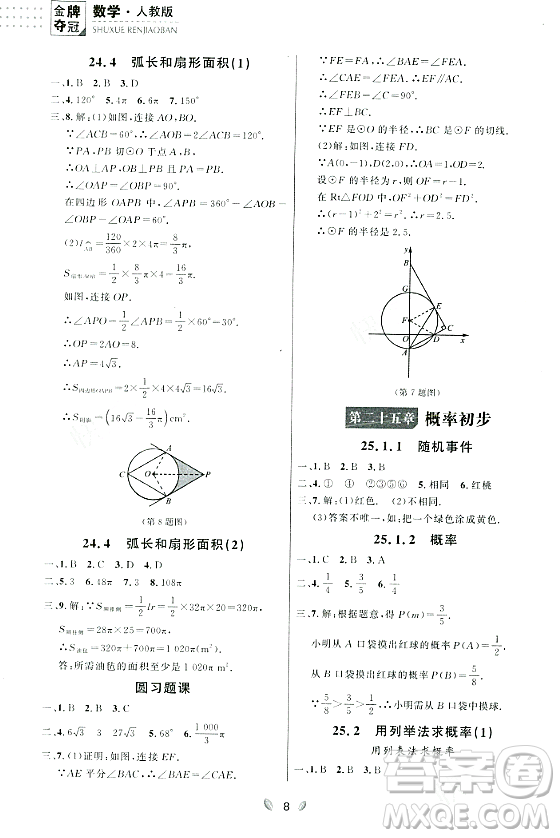 金牌夺冠 数学·人教版
SHUXUE RENJIAOBAN
24.4 弧长和扇形面积(1)
一、1.B 2.B 3.D
二、4.120° 5.4π 6.π 7.π
三、8.解:(1)如图,连接AO,BO.
∵∠ACB=60°,∴∠AOB=120°.
∵PA,PB切⊙O于A,B,
∴OA⊥PA,OB⊥PB.
∴∠OAP=∠OBP=90°.
在四边形OAPB中,∠APB=360°-
∠OAP-∠OBP-∠AOB=60°.
(2)l=120/360×8π=8/3π,
S扇形=1/2×8/3π×4=16/3π.
如图,连接OP.
∴∠APO=1/2∠APB=30°.
∴OP=2AO=8.
∴AP=4√3.
∴S四边形OAPB=2×1/2×4×4√3=16√3.
∴S阴影=(16√3-16/3π)cm².
A
C
O
P
B
(第8题图)
24.4 弧长和扇形面积(2)
一、1.B 2.B 3.B 4.D
二、5.3 6.48π 7.3 8.108π
三、9.解:∵S=1/2lr=1/2×32π×20=320π,
S=28π×25=700π,
∴S=320π+700π=1 020π(m²).
答:所需油毡的面积至少为1 020π m².
圆习题课
一、1.B 2.B 3.C
二、4.6√3 5.30° 6.1 000/3π
三、7.(1)证明:如图,连接EF.
∵AE平分∠BAC,∴∠BAE=∠CAE.
∵FA=FE,∴∠FAE=∠FEA.
∴∠FEA=∠EAC.∴FE∥AC.
∴∠FEB=∠C=90°.
∴EF⊥BC.
∵EF是⊙F的半径,∴BC是⊙F的切线.
(2)解:如图,连接FD.
设⊙F的半径为r,
∵A(0,-1),D(2,0),
∴OA=1,OD=2,OF=r-1.
在Rt△FOD中,FD²=OF²+OD²,
∴(r-1)²+2²=r².∴r=2.5.
∴⊙F的半径是2.5.
y
B
G
E
F
C
O
D
x
A
(第7题图)
第二十五章 概率初步
25.1.1 随机事件
一、1.B 2.B 3.B
二、4.① ① ②③⑤⑥ 5.相同 6.红桃
三、7.解:(1)红色. (2)相同.
(3)答案不唯一,如:把一个绿色涂成黄色.
25.1.2 概率
一、1.A 2.D 3.B
二、4.1/4 5.1/3 6.2/5
三、7.解:根据题意,得P(m)=3/5.
小明从A口袋摸出红球的概率P(A)=1/2.
从B口袋摸出红球的概率P(B)=2/3.
∵2/3>3/5>1/2,∴小明需从B口袋中摸球.
25.2 用列举法求概率(1)
用列表法求概率
一、1.B 2.A
8